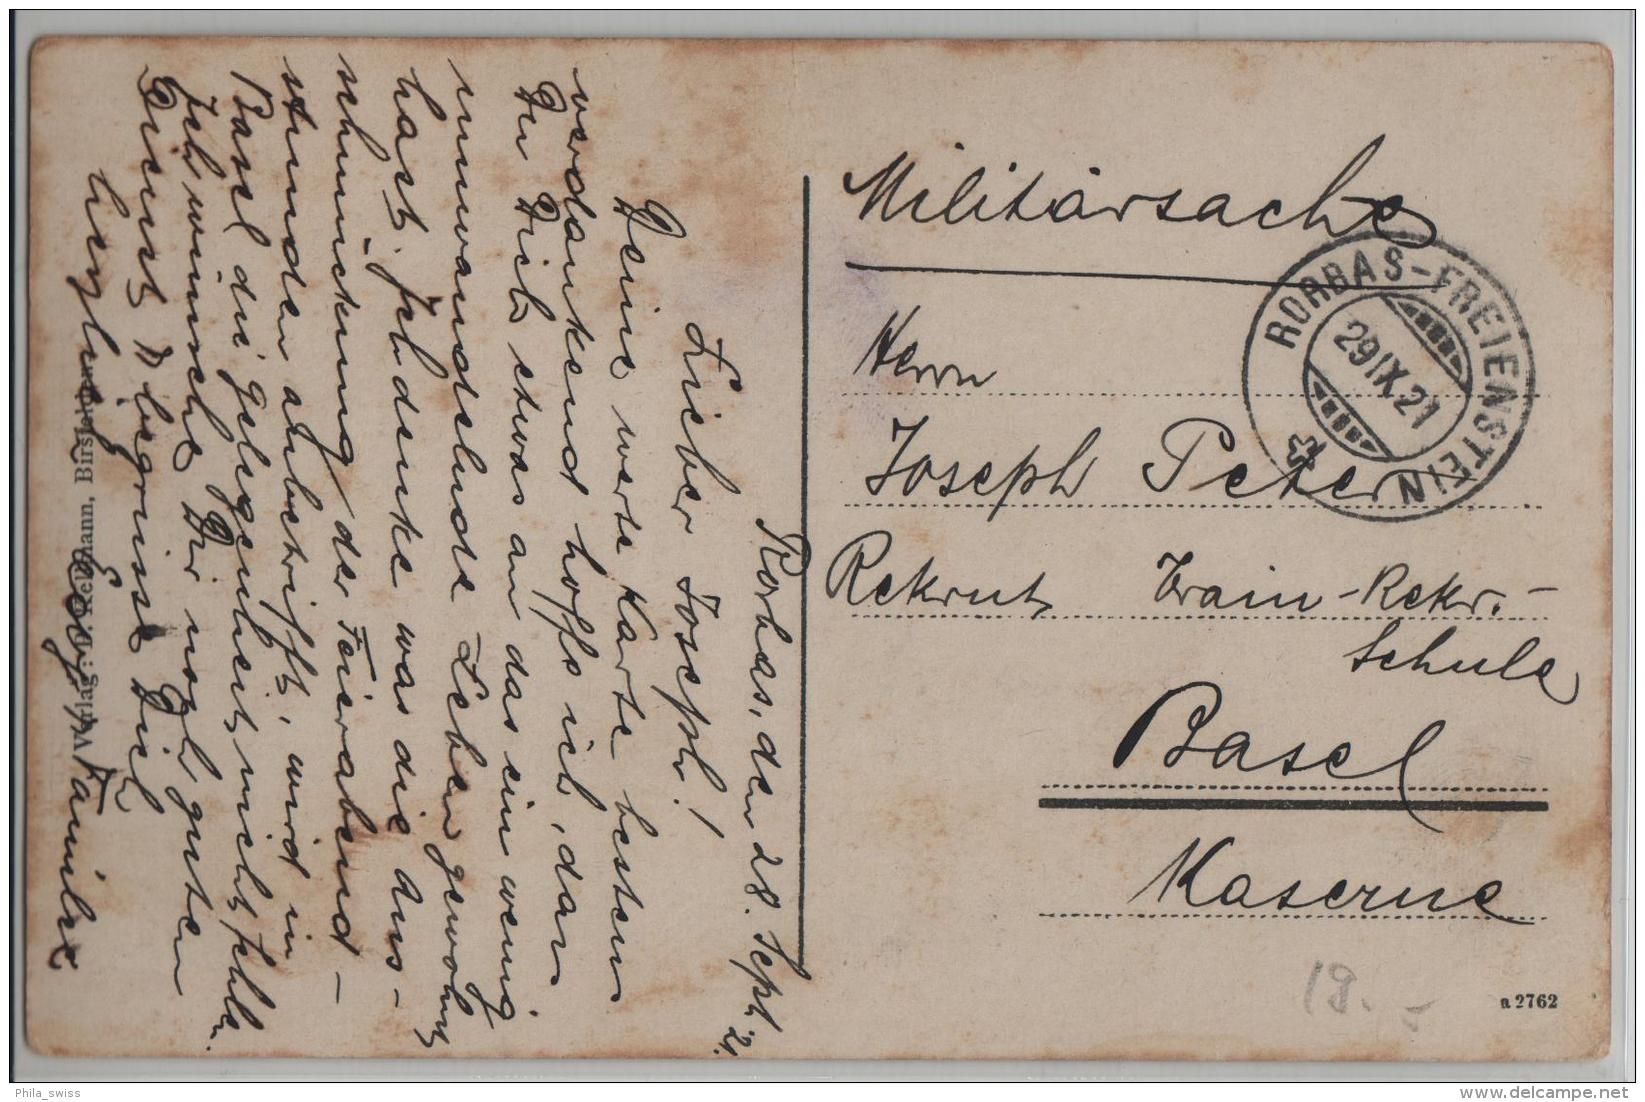 Rorbas, den 28. Sept. 21.
Lieber Joseph!
Deine werte Karte bestens
verdankend hoffe ich, dass
Du Dich etwas an das ein wenig
umwandelnde Leben gewohnt
hast. Ich denke was die Aus-
schmückung der Feierabend-
stunden anbetrifft, wird in
Basel die Gelegenheit nicht fehlen.
Ich wünsche Dir noch guten
Dienst & begrüsse Dich
herzlich
Familie
Verlag: Birsfelden
Militärsache
RORBAS-FREIENSTEIN
29.IX.21
Herrn
Joseph Peter
Rekrut Train-Rekr.-
Schule
Basel
Kaserne
19.-
a 2762
Phila_swiss
delcampe.net